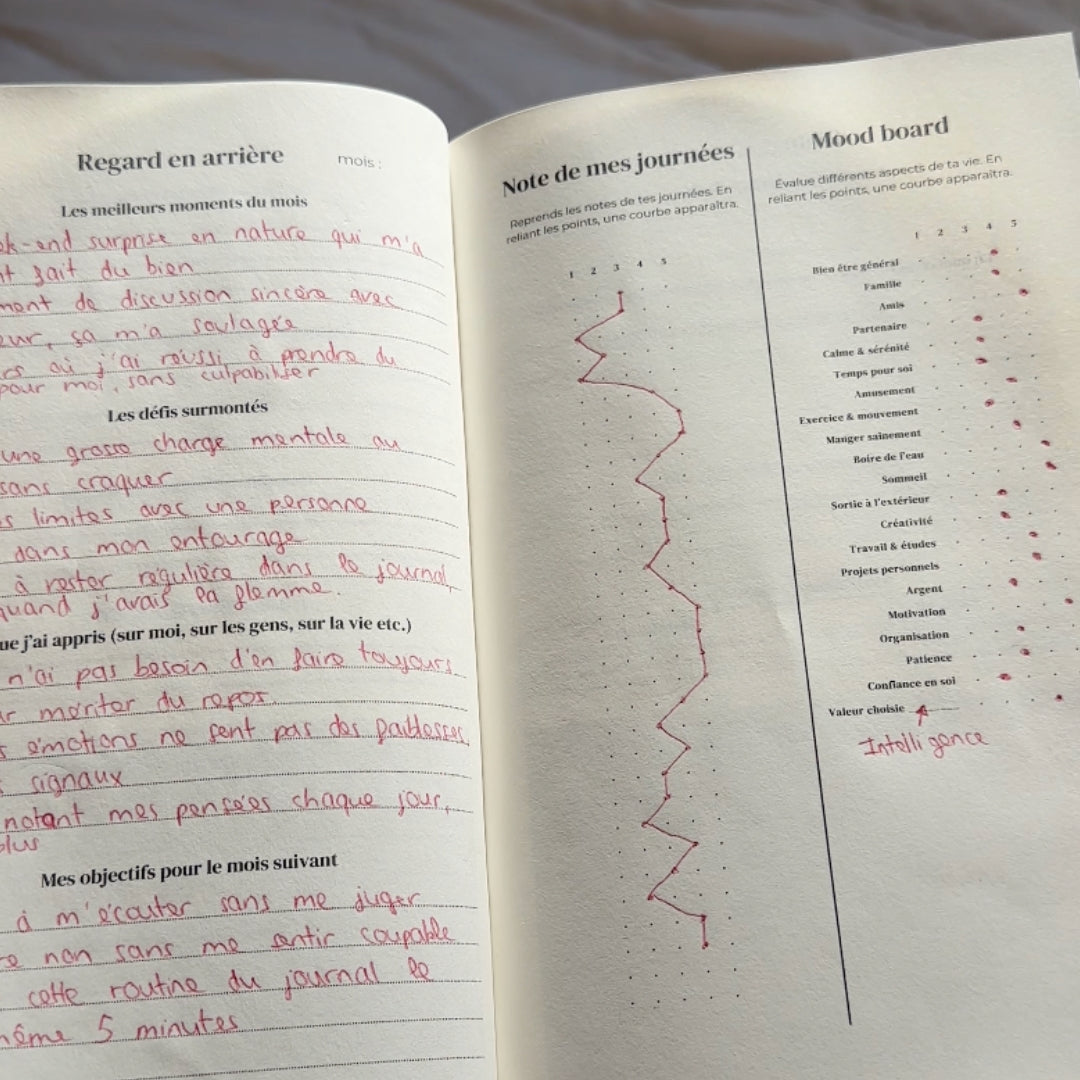 Regard en arrière
mois :
Les meilleurs moments du mois
surprise en nature qui m'a
fait du bien
de discussion sincère avec
ça m'a soulagée
où j'ai réussi à prendre du
pour moi, sans culpabiliser
Les défis surmontés
une grosse charge mentale au
sans craquer
limites avec une personne
dans mon entourage
à rester régulière dans le journal,
quand j'avais la flemme.
j'ai appris (sur moi, sur les gens, sur la vie etc.)
n'ai pas besoin d'en faire toujours
mériter du repos.
émotions ne sont pas des faiblesses,
signaux
notant mes pensées chaque jour,
plus
Mes objectifs pour le mois suivant
à m'écouter sans me juger
non sans me sentir coupable
cette routine du journal le
même 5 minutes
Note de mes journées
Reprends les notes de tes journées. En
reliant les points, une courbe apparaîtra.
1 2 3 4 5
Mood board
Évalue différents aspects de ta vie. En
reliant les points, une courbe apparaîtra.
1 2 3 4 5
Bien être général
Famille
Amis
Partenaire
Calme & sérénité
Temps pour soi
Amusement
Exercice & mouvement
Manger sainement
Boire de l'eau
Sommeil
Sortie à l'extérieur
Créativité
Travail & études
Projets personnels
Argent
Motivation
Organisation
Patience
Confiance en soi
Valeur choisie
Intelligence